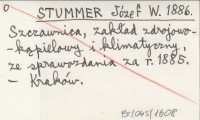 O
STUMMER Józef W. 1886.
Szczawnica, zakład zdrojowo-
-kąpielowy i klimatyczny,
ze sprawozdania za r. 1885.
- Kraków.